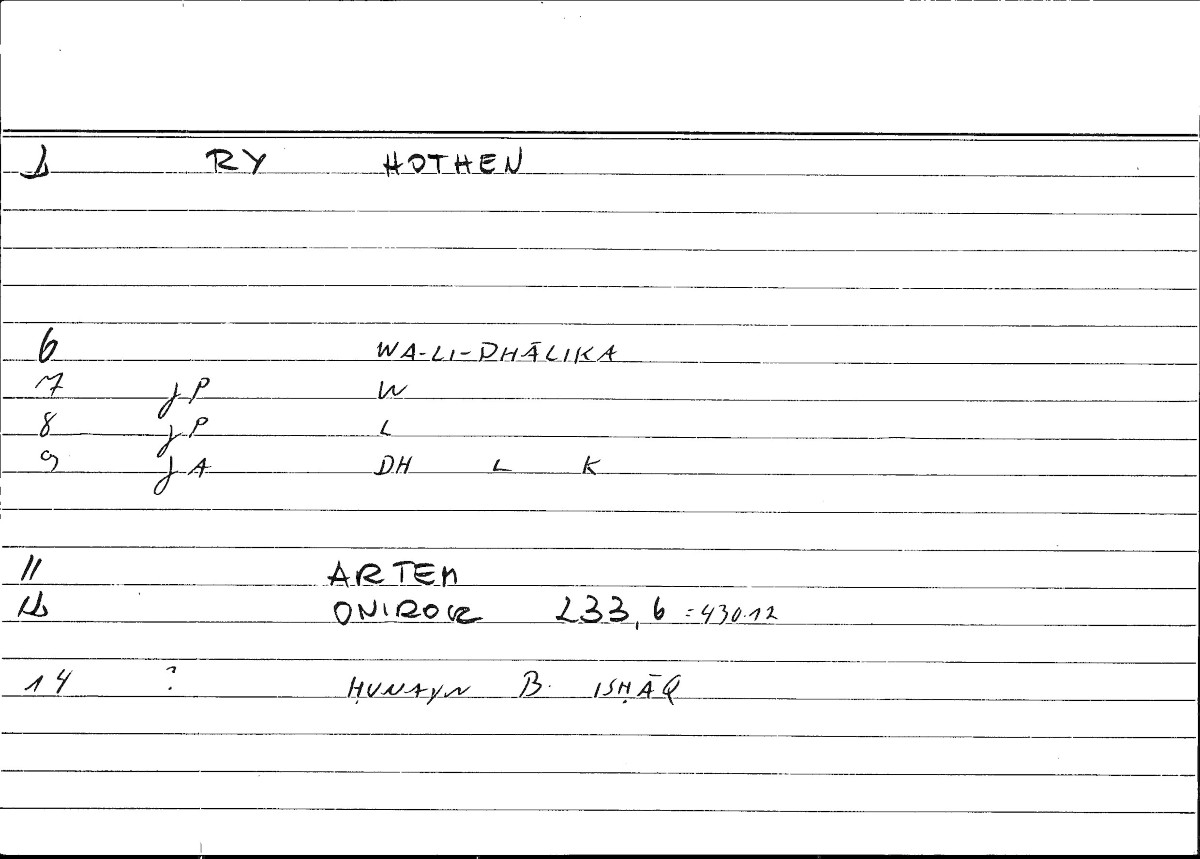 1 RY HOTHEN
6 WA-LI-DHĀLIKA
7 JP W
8 JP L
9 JA DH L K
11 ARTEM
12 ONIROCR 233,6 = 430.12
14 ? ḤUNAYN B. ISḤĀQ